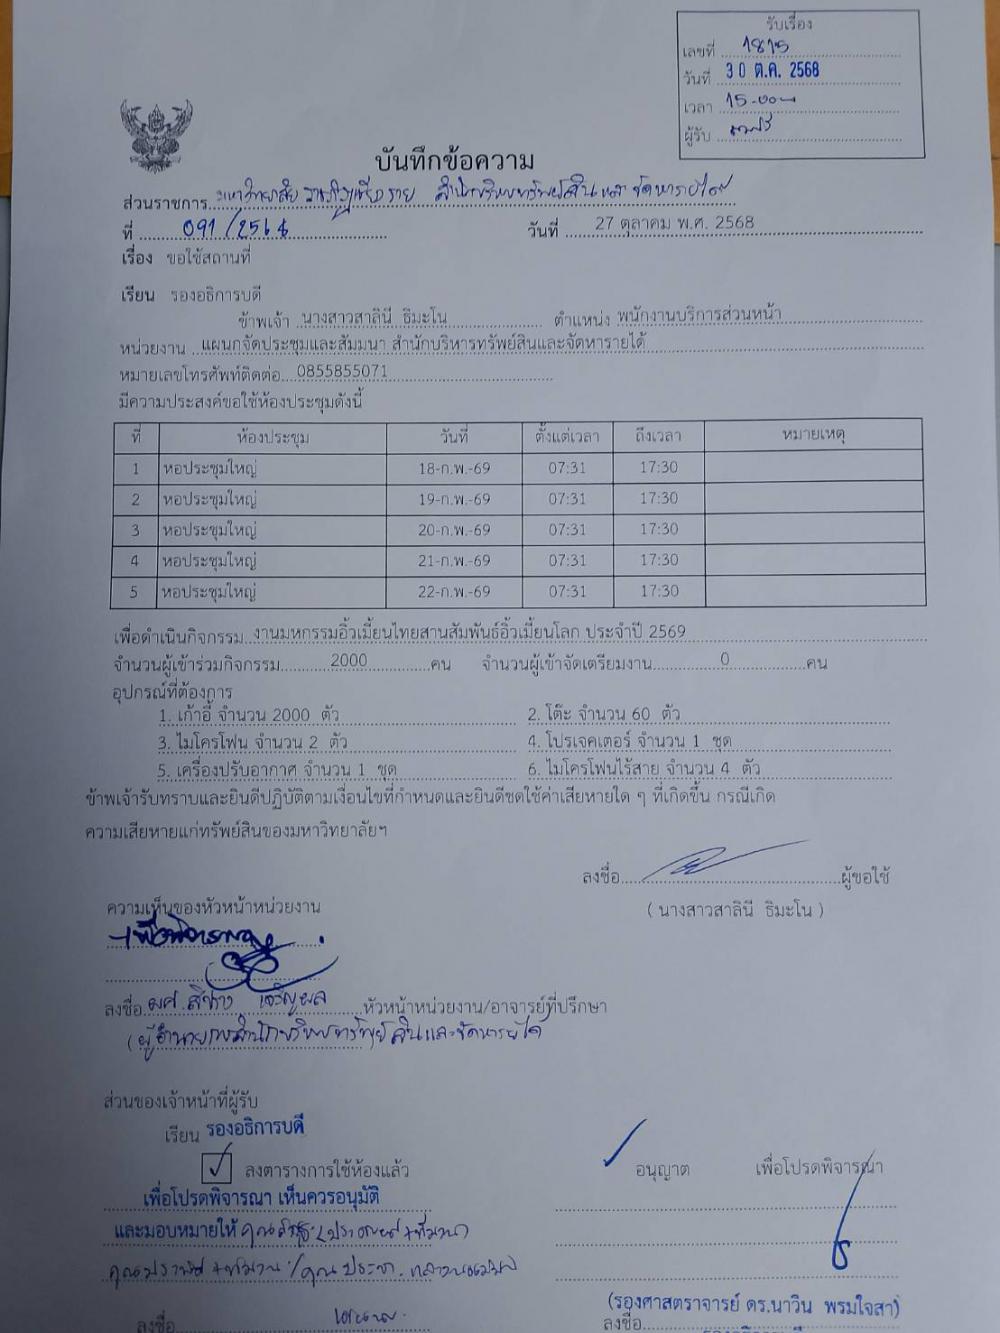 รับเรื่อง
เลขที่ 1815
วันที่ 30 ต.ค. 2568
เวลา 15.00 น
ผู้รับ
บันทึกข้อความ
ส่วนราชการ มหาวิทยาลัยราชภัฏเชียงราย สำนักบริหารทรัพย์สินและจัดหารายได้
ที่ 091/2568 วันที่ 27 ตุลาคม พ.ศ. 2568
เรื่อง ขอใช้สถานที่
เรียน รองอธิการบดี
ข้าพเจ้า นางสาวสาลินี ธิมะโน ตำแหน่ง พนักงานบริการส่วนหน้า
หน่วยงาน แผนกจัดประชุมและสัมมนา สำนักบริหารทรัพย์สินและจัดหารายได้
หมายเลขโทรศัพท์ติดต่อ 0855855071
มีความประสงค์ขอใช้ห้องประชุมดังนี้
ที่ ห้องประชุม วันที่ ตั้งแต่เวลา ถึงเวลา หมายเหตุ
1 หอประชุมใหญ่ 18-ก.พ.-69 07:31 17:30
2 หอประชุมใหญ่ 19-ก.พ.-69 07:31 17:30
3 หอประชุมใหญ่ 20-ก.พ.-69 07:31 17:30
4 หอประชุมใหญ่ 21-ก.พ.-69 07:31 17:30
5 หอประชุมใหญ่ 22-ก.พ.-69 07:31 17:30
เพื่อดำเนินกิจกรรม งานมหกรรมอิ้วเมี้ยนไทยสานสัมพันธ์อิ้วเมี้ยนโลก ประจำปี 2569
จำนวนผู้เข้าร่วมกิจกรรม 2000 คน จำนวนผู้เข้าจัดเตรียมงาน 0 คน
อุปกรณ์ที่ต้องการ
1. เก้าอี้ จำนวน 2000 ตัว 2. โต๊ะ จำนวน 60 ตัว
3. ไมโครโฟน จำนวน 2 ตัว 4. โปรเจคเตอร์ จำนวน 1 ชุด
5. เครื่องปรับอากาศ จำนวน 1 ชุด 6. ไมโครโฟนไร้สาย จำนวน 4 ตัว
ข้าพเจ้ารับทราบและยินดีปฏิบัติตามเงื่อนไขที่กำหนดและยินดีชดใช้ค่าเสียหายใด ๆ ที่เกิดขึ้น กรณีเกิด
ความเสียหายแก่ทรัพย์สินของมหาวิทยาลัยฯ
ลงชื่อ ผู้ขอใช้
(นางสาวสาลินี ธิมะโน)
ความเห็นของหัวหน้าหน่วยงาน
-เพื่อพิจารณา
ลงชื่อ ผศ. เจริญผล หัวหน้าหน่วยงาน/อาจารย์ที่ปรึกษา
(ผู้อำนวยการสำนักบริหารทรัพย์สินและจัดหารายได้
ส่วนของเจ้าหน้าที่ผู้รับ
เรียน รองอธิการบดี
ลงตารางการใช้ห้องแล้ว อนุญาต เพื่อโปรดพิจารณา
เพื่อโปรดพิจารณา เห็นควรอนุมัติ
และมอบหมายให้
(รองศาสตราจารย์ ดร.นาวิน พรมใจสา)
ลงชื่อ ลงชื่อ